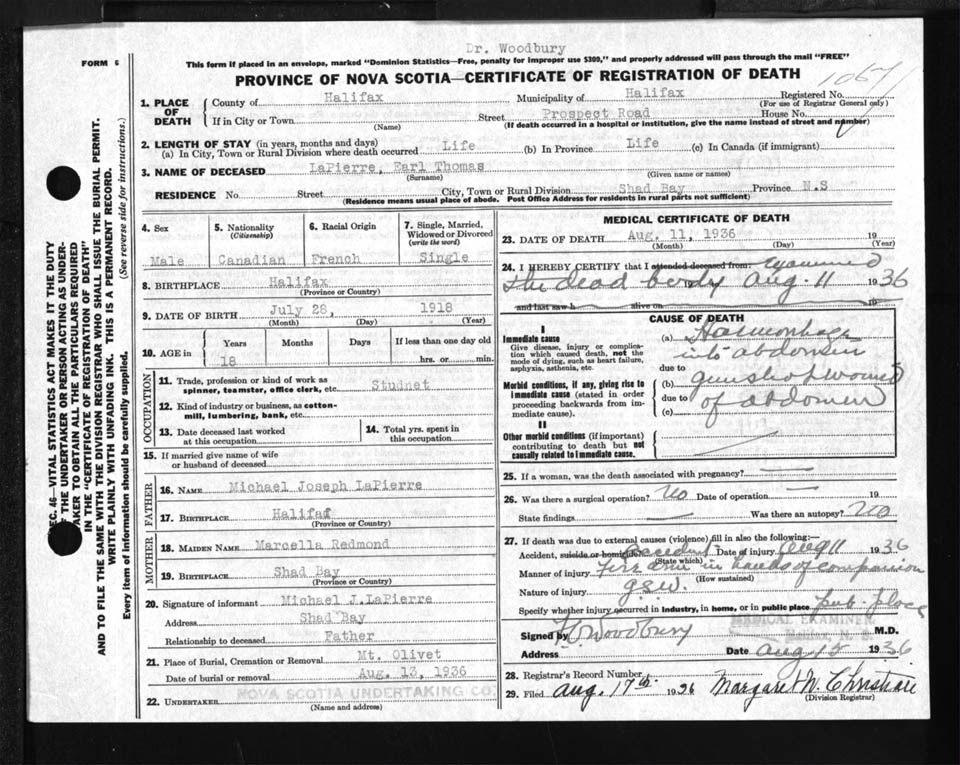 Dr. Woodbury
FORM 6
This form if placed in an envelope, marked "Dominion Statistics—Free, penalty for improper use $300," and properly addressed will pass through the mail "FREE"
PROVINCE OF NOVA SCOTIA—CERTIFICATE OF REGISTRATION OF DEATH
1067
SEC. 46—VITAL STATISTICS ACT MAKES IT THE DUTY
OF THE UNDERTAKER OR PERSON ACTING AS UNDER-
TAKER TO OBTAIN ALL THE PARTICULARS REQUIRED
IN THE "CERTIFICATE OF REGISTRATION OF DEATH"
AND TO FILE THE SAME WITH THE DIVISION REGISTRAR WHO SHALL ISSUE THE BURIAL PERMIT.
WRITE PLAINLY WITH UNFADING INK. THIS IS A PERMANENT RECORD.
Every item of information should be carefully supplied. (See reverse side for instructions.)
1. PLACE OF DEATH
County of Halifax Municipality of Halifax Registered No.
(For use of Registrar General only)
If in City or Town Street Prospect Road House No.
(Name) (If death occurred in a hospital or institution, give the name instead of street and number)
2. LENGTH OF STAY (in years, months and days)
(a) In City, Town or Rural Division where death occurred Life (b) In Province Life (c) In Canada (if immigrant)
3. NAME OF DECEASED LaPierre, Earl Thomas
(Surname) (Given name or names)
RESIDENCE No. Street City, Town or Rural Division Shad Bay Province N.S
(Residence means usual place of abode. Post Office Address for residents in rural parts not sufficient)
4. Sex
Male
5. Nationality
(Citizenship)
Canadian
6. Racial Origin
French
7. Single, Married,
Widowed or Divorced
(write the word)
Single
8. BIRTHPLACE Halifax
(Province or Country)
9. DATE OF BIRTH July 28, 1918
(Month) (Day) (Year)
10. AGE in
Years Months Days If less than one day old
18 hrs. or min.
OCCUPATION
11. Trade, profession or kind of work as
spinner, teamster, office clerk, etc. Studnet
12. Kind of industry or business, as cotton-
mill, lumbering, bank, etc.
13. Date deceased last worked
at this occupation
14. Total yrs. spent in
this occupation
15. If married give name of wife
or husband of deceased
FATHER
16. NAME Michael Joseph LaPierre
17. BIRTHPLACE Halifax
(Province or Country)
MOTHER
18. MAIDEN NAME Marcella Redmond
19. BIRTHPLACE Shad Bay
(Province or Country)
20. Signature of informant Michael J.LaPierre
Address Shad Bay
Relationship to deceased Father
21. Place of Burial, Cremation or Removal Mt. Olivet
Date of burial or removal Aug. 13, 1936
22. UNDERTAKER NOVA SCOTIA UNDERTAKING CO.
(Name and address)
MEDICAL CERTIFICATE OF DEATH
23. DATE OF DEATH Aug. 11, 1936 19
(Month) (Day) (Year)
24. I HEREBY CERTIFY that I attended deceased from: examined
the dead body Aug. 11 1936
and last saw h alive on 19
CAUSE OF DEATH
I
Immediate cause
Give disease, injury or complica-
tion which caused death, not the
mode of dying, such as heart failure,
asphyxia, asthenia, etc.
Morbid conditions, if any, giving rise to
immediate cause (stated in order
proceeding backwards from im-
mediate cause).
II
Other morbid conditions (if important)
contributing to death but not
causally related to immediate cause.
(a) Haemorrhage
into abdomen
due to
(b) gunshot wound
due to of abdomen
(c)
25. If a woman, was the death associated with pregnancy?
26. Was there a surgical operation? No Date of operation 19
State findings Was there an autopsy? No
27. If death was due to external causes (violence) fill in also the following:—
Accident, suicide or homicide accident Date of injury Aug 11 1936
(State which)
Manner of injury Fire arm in hands of companion
(How sustained)
Nature of injury g.s.w.
Specify whether injury occurred in industry, in home, or in public place pub. place
MEDICAL EXAMINER
Signed by Woodbury M.D.
Address Date Aug 15 1936
28. Registrar's Record Number
29. Filed Aug. 17th 1936 Margaret M. Christie
(Division Registrar)